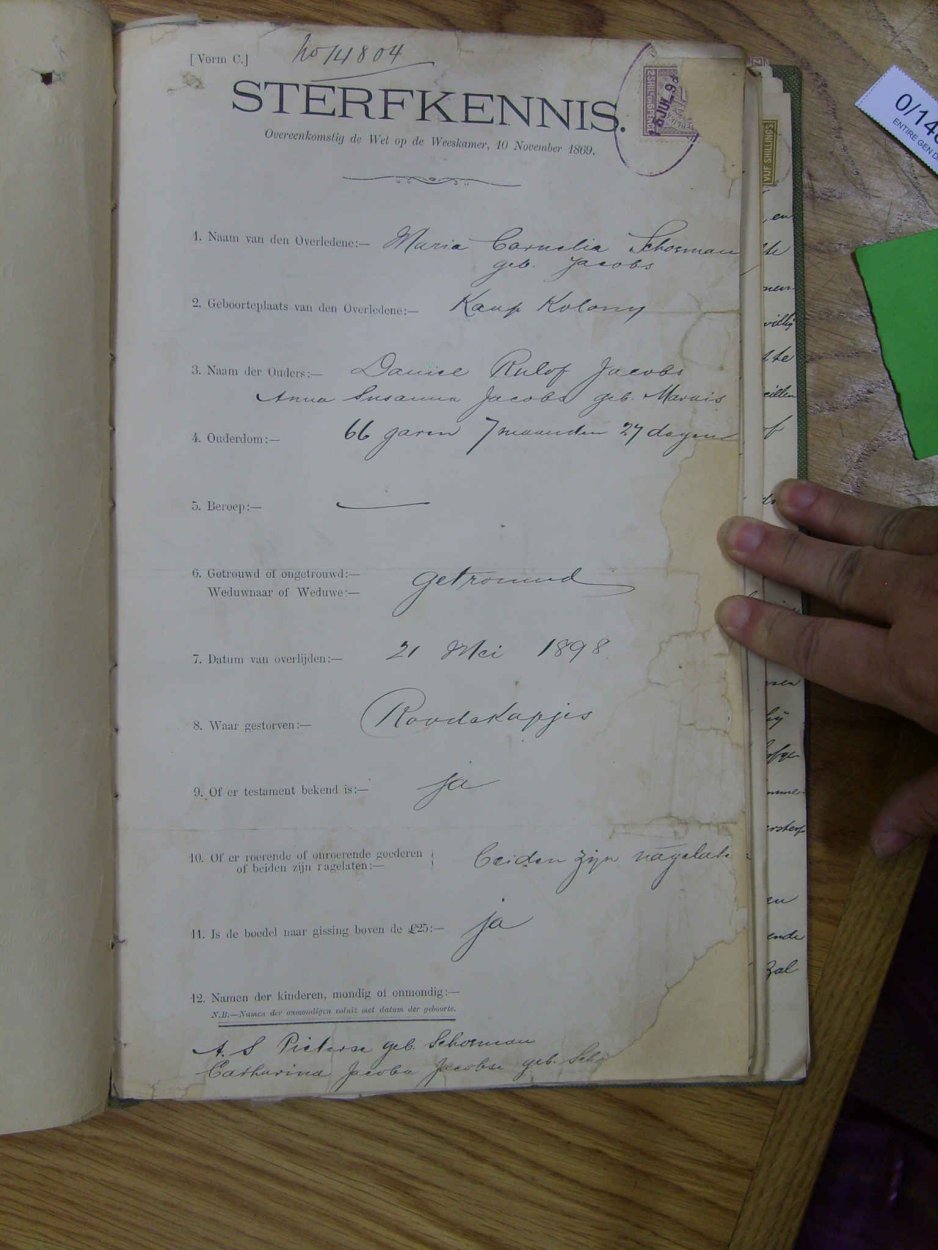 [Vorm C.]
No 14804
STERFKENNIS.
Overeenkomstig de Wet op de Weeskamer, 10 November 1869.
1. Naam van den Overledene:— Maria Cornelia Schoeman
geb. Jacobs
2. Geboorteplaats van den Overledene:— Kaap Kolony
3. Naam der Ouders:— Daniel Rulof Jacobs
Anna Susanna Jacobs geb. Marais
4. Ouderdom:— 66 jaren 7 maanden 27 dagen
5. Beroep:—
6. Getrouwd of ongetrouwd:— getrouwd
Weduwnaar of Weduwe:—
7. Datum van overlijden:— 21 Mei 1898
8. Waar gestorven:— Roodekopjes
9. Of er testament bekend is:— ja
10. Of er roerende of onroerende goederen
of beiden zijn nagelaten:— beiden zijn nagelate
11. Is de boedel naar gissing boven de £25:— ja
12. Namen der kinderen, mondig of onmondig:—
N.B.—Namen der onmondigen voluit met datum der geboorte.
A. S Pieterse geb. Schoeman
Catharina Jacoba Jacobse geb. Scho
VIJF SHILLINGS
0/14
ENTIRE GEN D
en
of
ende
zal